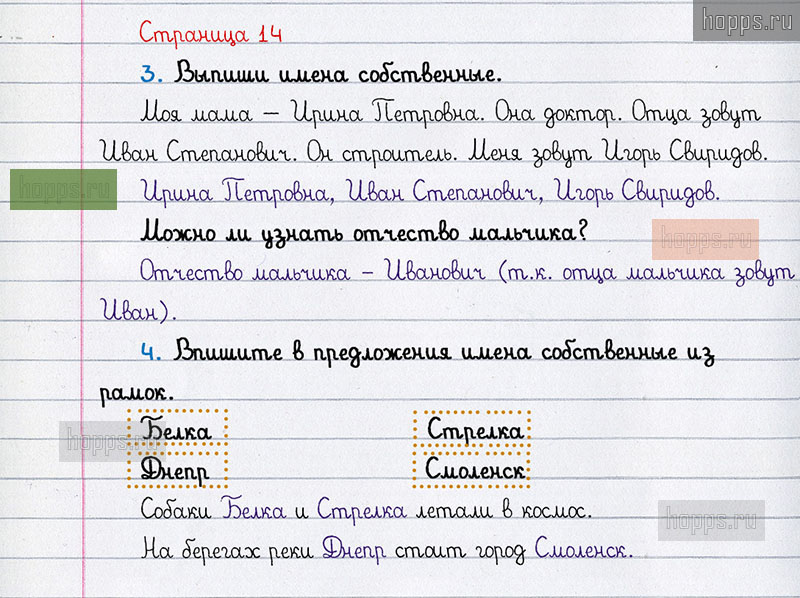 hopps.ru
Страница 14
3. Выпиши имена собственные.
Моя мама – Ирина Петровна. Она доктор. Отца зовут
Иван Степанович. Он строитель. Меня зовут Игорь Свиридов.
hopps.ru
Ирина Петровна, Иван Степанович, Игорь Свиридов.
Можно ли узнать отчество мальчика?
hopps.ru
Отчество мальчика – Иванович (т.к. отца мальчика зовут
Иван).
4. Впишите в предложения имена собственные из
рамок.
hopps.ru
Белка Стрелка
Днепр Смоленск
Собаки Белка и Стрелка летали в космос.
hopps.ru
На берегах реки Днепр стоит город Смоленск.